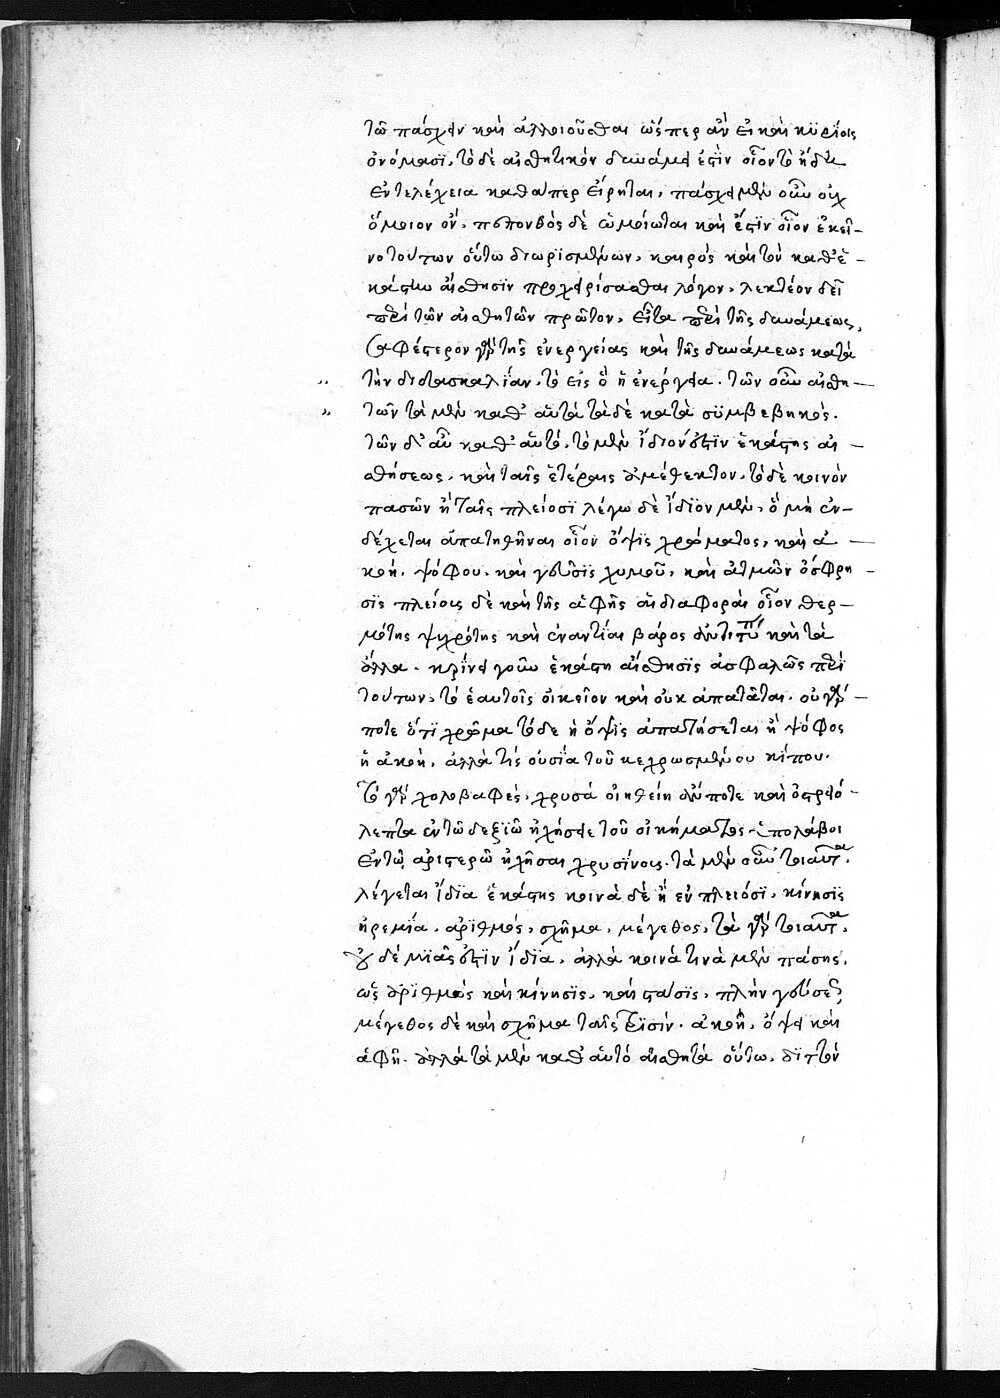 τῶ πάσχειν καὶ ἀλλοιοῦσθαι ὥσπερ ἂν εἰ καὶ κυρίοις
ὀνόμασϊ, τὸ δὲ αἰσθητικὸν δυνάμει ἐστϊν οἷον τὸ ἤδη
ἐντελέχεια καθάπερ εἴρηται, πάσχει μὲν οὖν οὐχ
ὅμοιον ὄν, πεπονθὸς δὲ ὡμοίωται καὶ ἔστϊν οἷον ἐκεῖ-
νο τούτων οὕτω διωρισμένων, καιρὸς καὶ τὸν καθ' ἑ-
κάστην αἴσθησϊν προχειρίσασθαι λόγον, λεκτέον δεῖ
περὶ τῶν αἰσθητῶν πρῶτον, εἶτα περὶ τῆς δυνάμεως,
σαφέστερον γὰρ τῆς ἐνεργείας καὶ τῆς δυνάμεως κατὰ
τὴν διδασκαλίαν, τὸ εἰς ὃ ἡ ἐνέργεια. τῶν οὖν αἰσθη-
τῶν τὰ μὲν καθ' αὑτὰ τὰ δὲ κατὰ συμβεβηκός.
τῶν δ' αὖ καθ' αὑτό, τὸ μὲν ἴδιόν ἐστϊν ἑκάστης αἰ-
σθήσεως, καὶ ταῖς ἑτέραις ἀμέθεκτον, τὸ δὲ κοινὸν
πασῶν ἢ ταῖς πλείοσϊ λέγω δὲ ἴδϊον μὲν, ὃ μὴ ἐν-
δέχεται ἀπατηθῆναι οἷον ὄψϊς χρώματος, καὶ ἀ-
κοὴ, ψόφου, καὶ γεῦσϊς χυμοῦ, καὶ ἀτμῶν ὄσφρη-
σϊς πλείους δὲ καὶ τῆς ἁφῆς αἱ διαφοραὶ οἷον θερ-
μότης ψυχρότης καὶ ἐναντίαι βάρος ἀντιτυπ καὶ τὰ
ἄλλα. κρίνει γοῦν ἑκάστη αἴσθησϊς ἀσφαλῶς περὶ
τούτων, τὸ ἑαυτοῖς οἰκεῖον καὶ οὐκ ἀπατᾶται. οὐ γάρ
ποτε ὅτϊ χρῶμα τόδε ἡ ὄψϊς ἀπατήσεται ἢ ψόφος
ἡ ἀκοὴ, ἀλλὰ τίς οὐσία τοῦ κεχρωσμένου κἠ που.
τὸ γὰρ χολοβαφὲς, χρυσᾶ οἰηθείη ἄν ποτε καὶ ὀστρεό
λεπτα ἐν τῶ δεξϊῶ ἠχήσει τοῦ οἰκήματος ὑπολάβοι
ἐν τῶ ἀριστερῶ ἠχῆσαι χρυσίνοις. τὰ μὲν οὖν τοιαῦτα.
λέγεται ἴδϊα ἑκάστης κοινὰ δὲ ἢ ἐν πλείοσϊ, κίνησϊς
ἠρεμία, ἀρϊθμός, σχῆμα, μέγεθος, τὰ γὰρ τοιαῦτα,
οὐδεμϊᾶς ἐστϊν ἴδϊα, ἀλλὰ κοινά τινὰ μὲν πάσης,
ὡς ἀρϊθμὸς καὶ κίνησϊς, καὶ στάσϊς, πλὴν γεύσεως
μέγεθος δὲ καὶ σχῆμα ταῖς τρϊσίν. ἀκοῆ, ὄψει καὶ
ἁφῆ. ἀλλὰ τὰ μὲν καθ' αὑτὸ αἰσθητὰ οὕτω, διττὸν